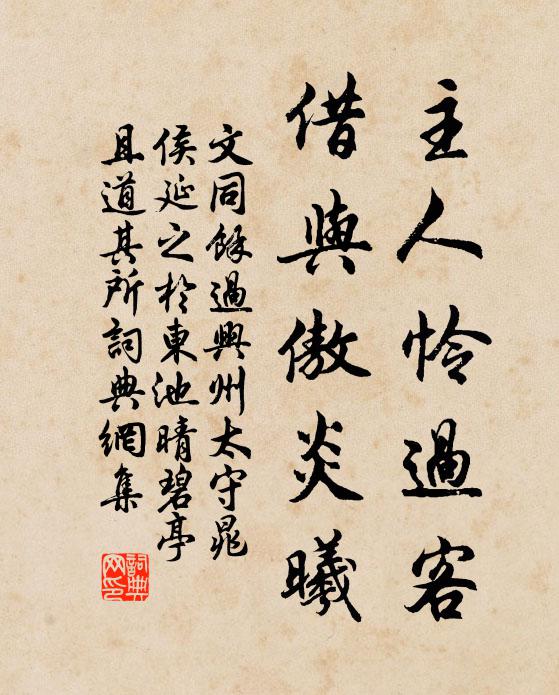 主人怜過客
借與傲炎曦
文同餘過興州太守晁
侯延之於東池晴碧亭
且道其所詞典網集
詞典網印